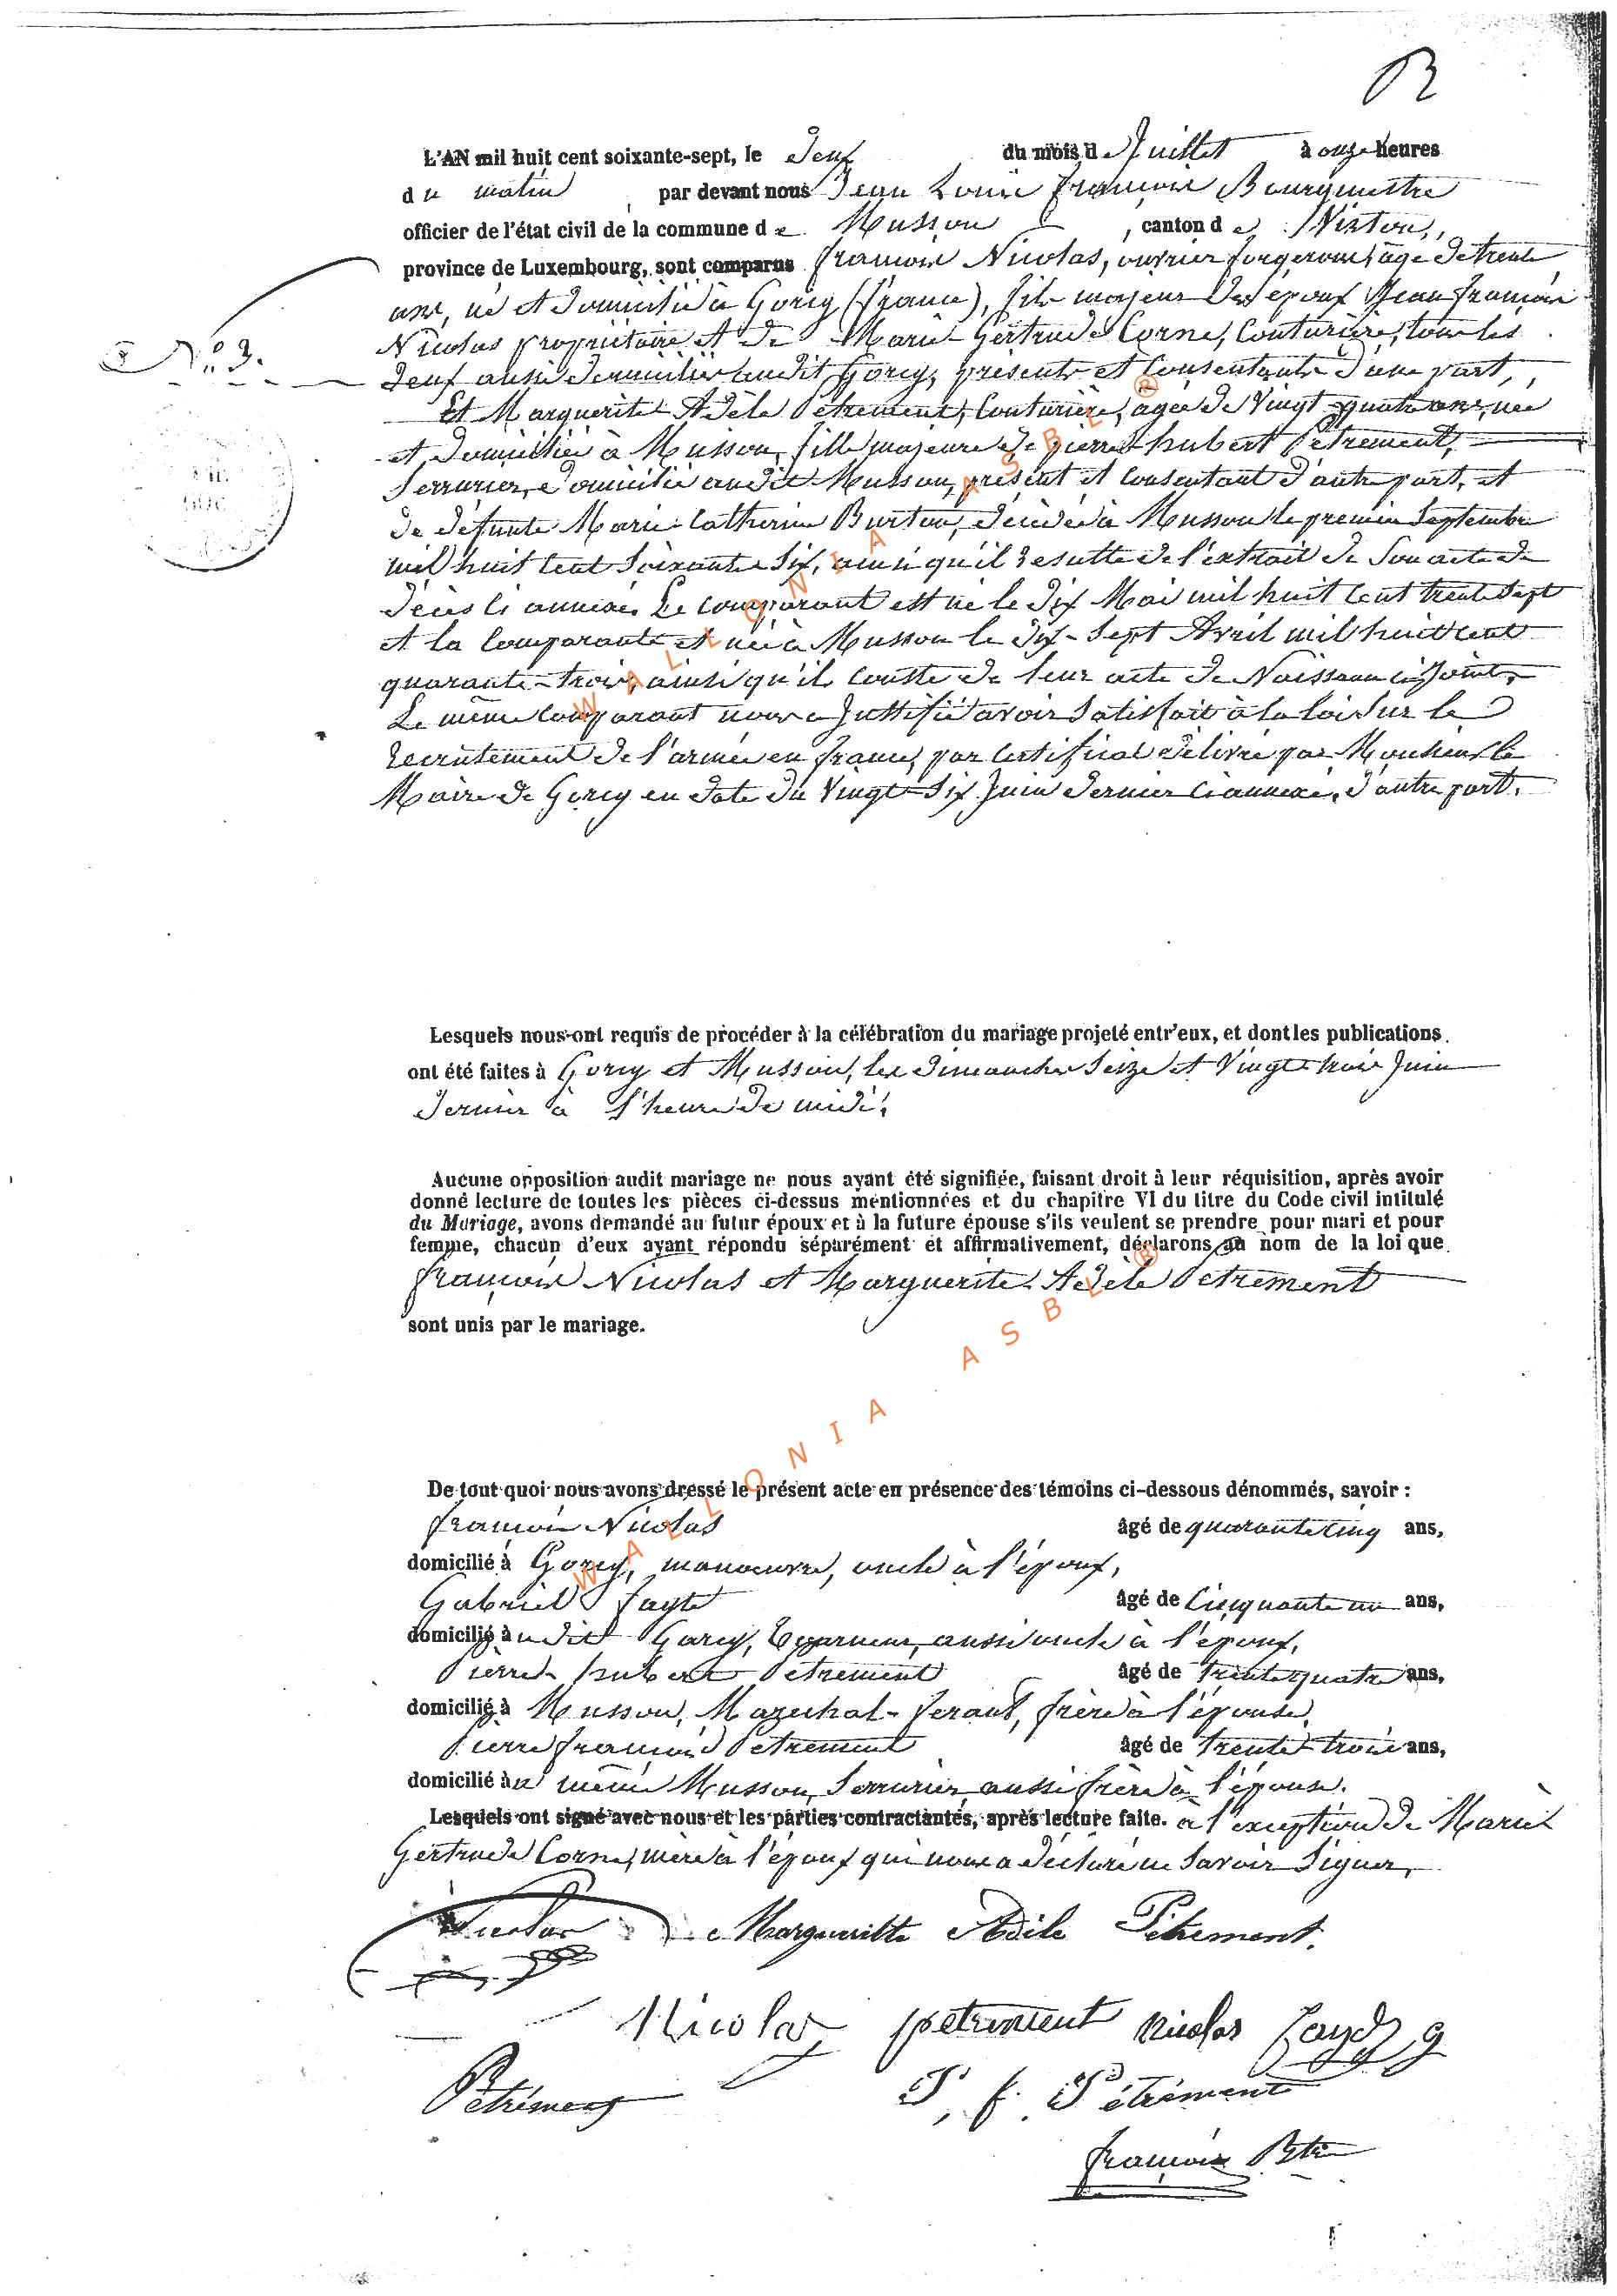 B
L'AN mil huit cent soixante-sept, le deux du mois de Juillet à onze heures
du matin par devant nous Jean Louis françois Bourgmestre
officier de l'état civil de la commune de Musson, canton de Virton,
province de Luxembourg, sont comparus françois Nicolas, ouvrier forgeron, âgé de trente
ans, né et domicilié à Gorcy (france), fils majeur des époux Jean françois
Nicolas propriétaire et de Marie Gertrude Corne, Couturière, tous les
N° 3.
deux aussi domiciliés audit Gorcy, présents et consentants d'une part,
Et Marguerite Adèle Pétrement, Couturière, agée de Vingt quatre ans, née
et domiciliée à Musson, fille majeure de pierre hubert Pétrement,
Serrurier, domicilié audit Musson, présent et consentant d'autre part, et
de défunte Marie Catherine Burton, décédée à Musson le premier Septembre
mil huit cent Soixante Six, ainsi qu'il resulte de l'extrait de Son acte de
décès ci annexé. Le comparant est né le dix Mai mil huit cent trente Sept
et la comparante est née à Musson le dix-Sept Avril mil huit cent
quarante-trois, ainsi qu'il conste de leur acte de Naissance ci joint,
Le même comparant nous a Justifié avoir Satisfait à la loi Sur le
recrutement de l'armée en france, par certificat délivré par Monsieur le
Maire de Gorcy en date du Vingt-Six Juin dernier ci annexé, d'autre part.
Lesquels nous ont requis de procéder à la célébration du mariage projeté entr'eux, et dont les publications
ont été faites à Gorcy et Musson, les dimanches Seize et Vingt trois Juin
dernier à l'heure de midi.
Aucune opposition audit mariage ne nous ayant été signifiée, faisant droit à leur réquisition, après avoir
donné lecture de toutes les pièces ci-dessus mentionnées et du chapitre VI du titre du Code civil intitulé
du Mariage, avons demandé au futur époux et à la future épouse s'ils veulent se prendre pour mari et pour
femme, chacun d'eux ayant répondu séparément et affirmativement, déclarons au nom de la loi que
françois Nicolas et Marguerite Adèle Pétrement
sont unis par le mariage.
De tout quoi nous avons dressé le présent acte en présence des témoins ci-dessous dénommés, savoir :
françois Nicolas âgé de quarante cinq ans,
domicilié à Gorcy, manoeuvre, oncle à l'époux,
Gabriel âgé de Cinquante un ans,
domicilié audit Gorcy, aussi oncle à l'époux,
Pierre hubert Pétrement âgé de trente quatre ans,
domicilié à Musson, Marechal-ferant, frère à l'épouse,
Pierre françois Pétrement âgé de trente trois ans,
domicilié au même Musson, Serrurier, aussi frère à l'épouse.
Lesquels ont signé avec nous et les parties contractantes, après lecture faite. à l'exception de Marie
Gertrude Corne, mère à l'époux qui nous a déclaré ne Savoir Signer.
Nicolas Margueritte Adèle Pétrement.
Nicolas petrement Nicolas
Pétrement P. f. Pétrément
françois
WALLONIA ASBL ®
WALLONIA ASBL ®